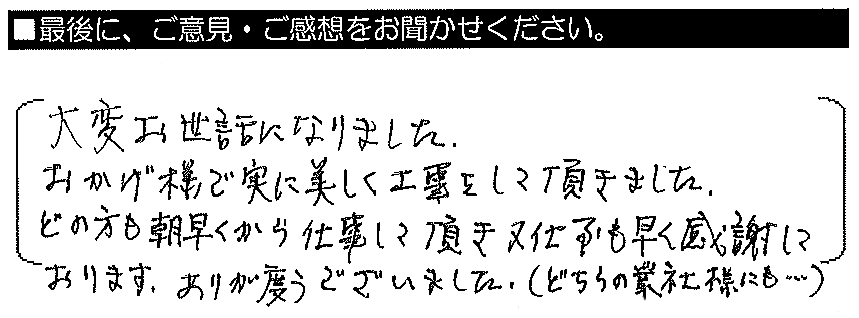 ■最後に、ご意見・ご感想をお聞かせください。
大変お世話になりました.
おかげ様で実に美しく工事をして頂きました.
どの方も朝早くから仕事して頂き又仕事も早く感謝して
おります. ありが度うございました.(どちらの業社様にも…)